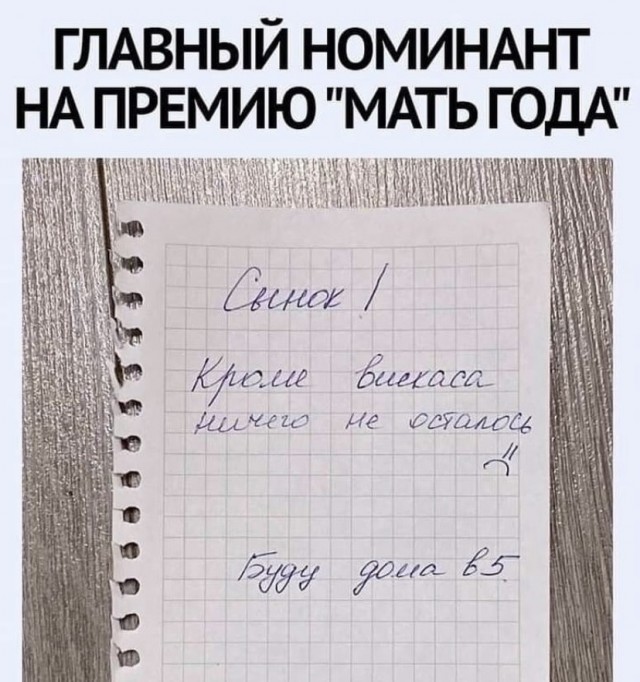 ГЛАВНЫЙ НОМИНАНТ
НА ПРЕМИЮ "МАТЬ ГОДА"
Сынок!
Кроме вискаса
ничего не осталось
Буду дома в 5